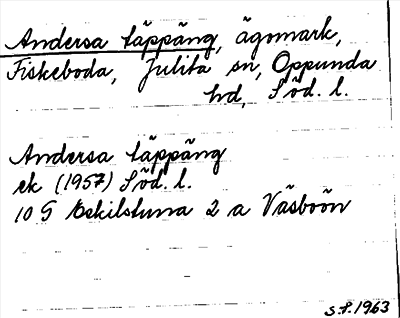 Andersa täppäng, ägomark,
Fiskeboda, Julita sn, Oppunda
hd, Söd. l.
Andersa täppäng
ek (1957) Söd. l.
10 G Eskilstuna 2 a Väsboön
S.P. 1963